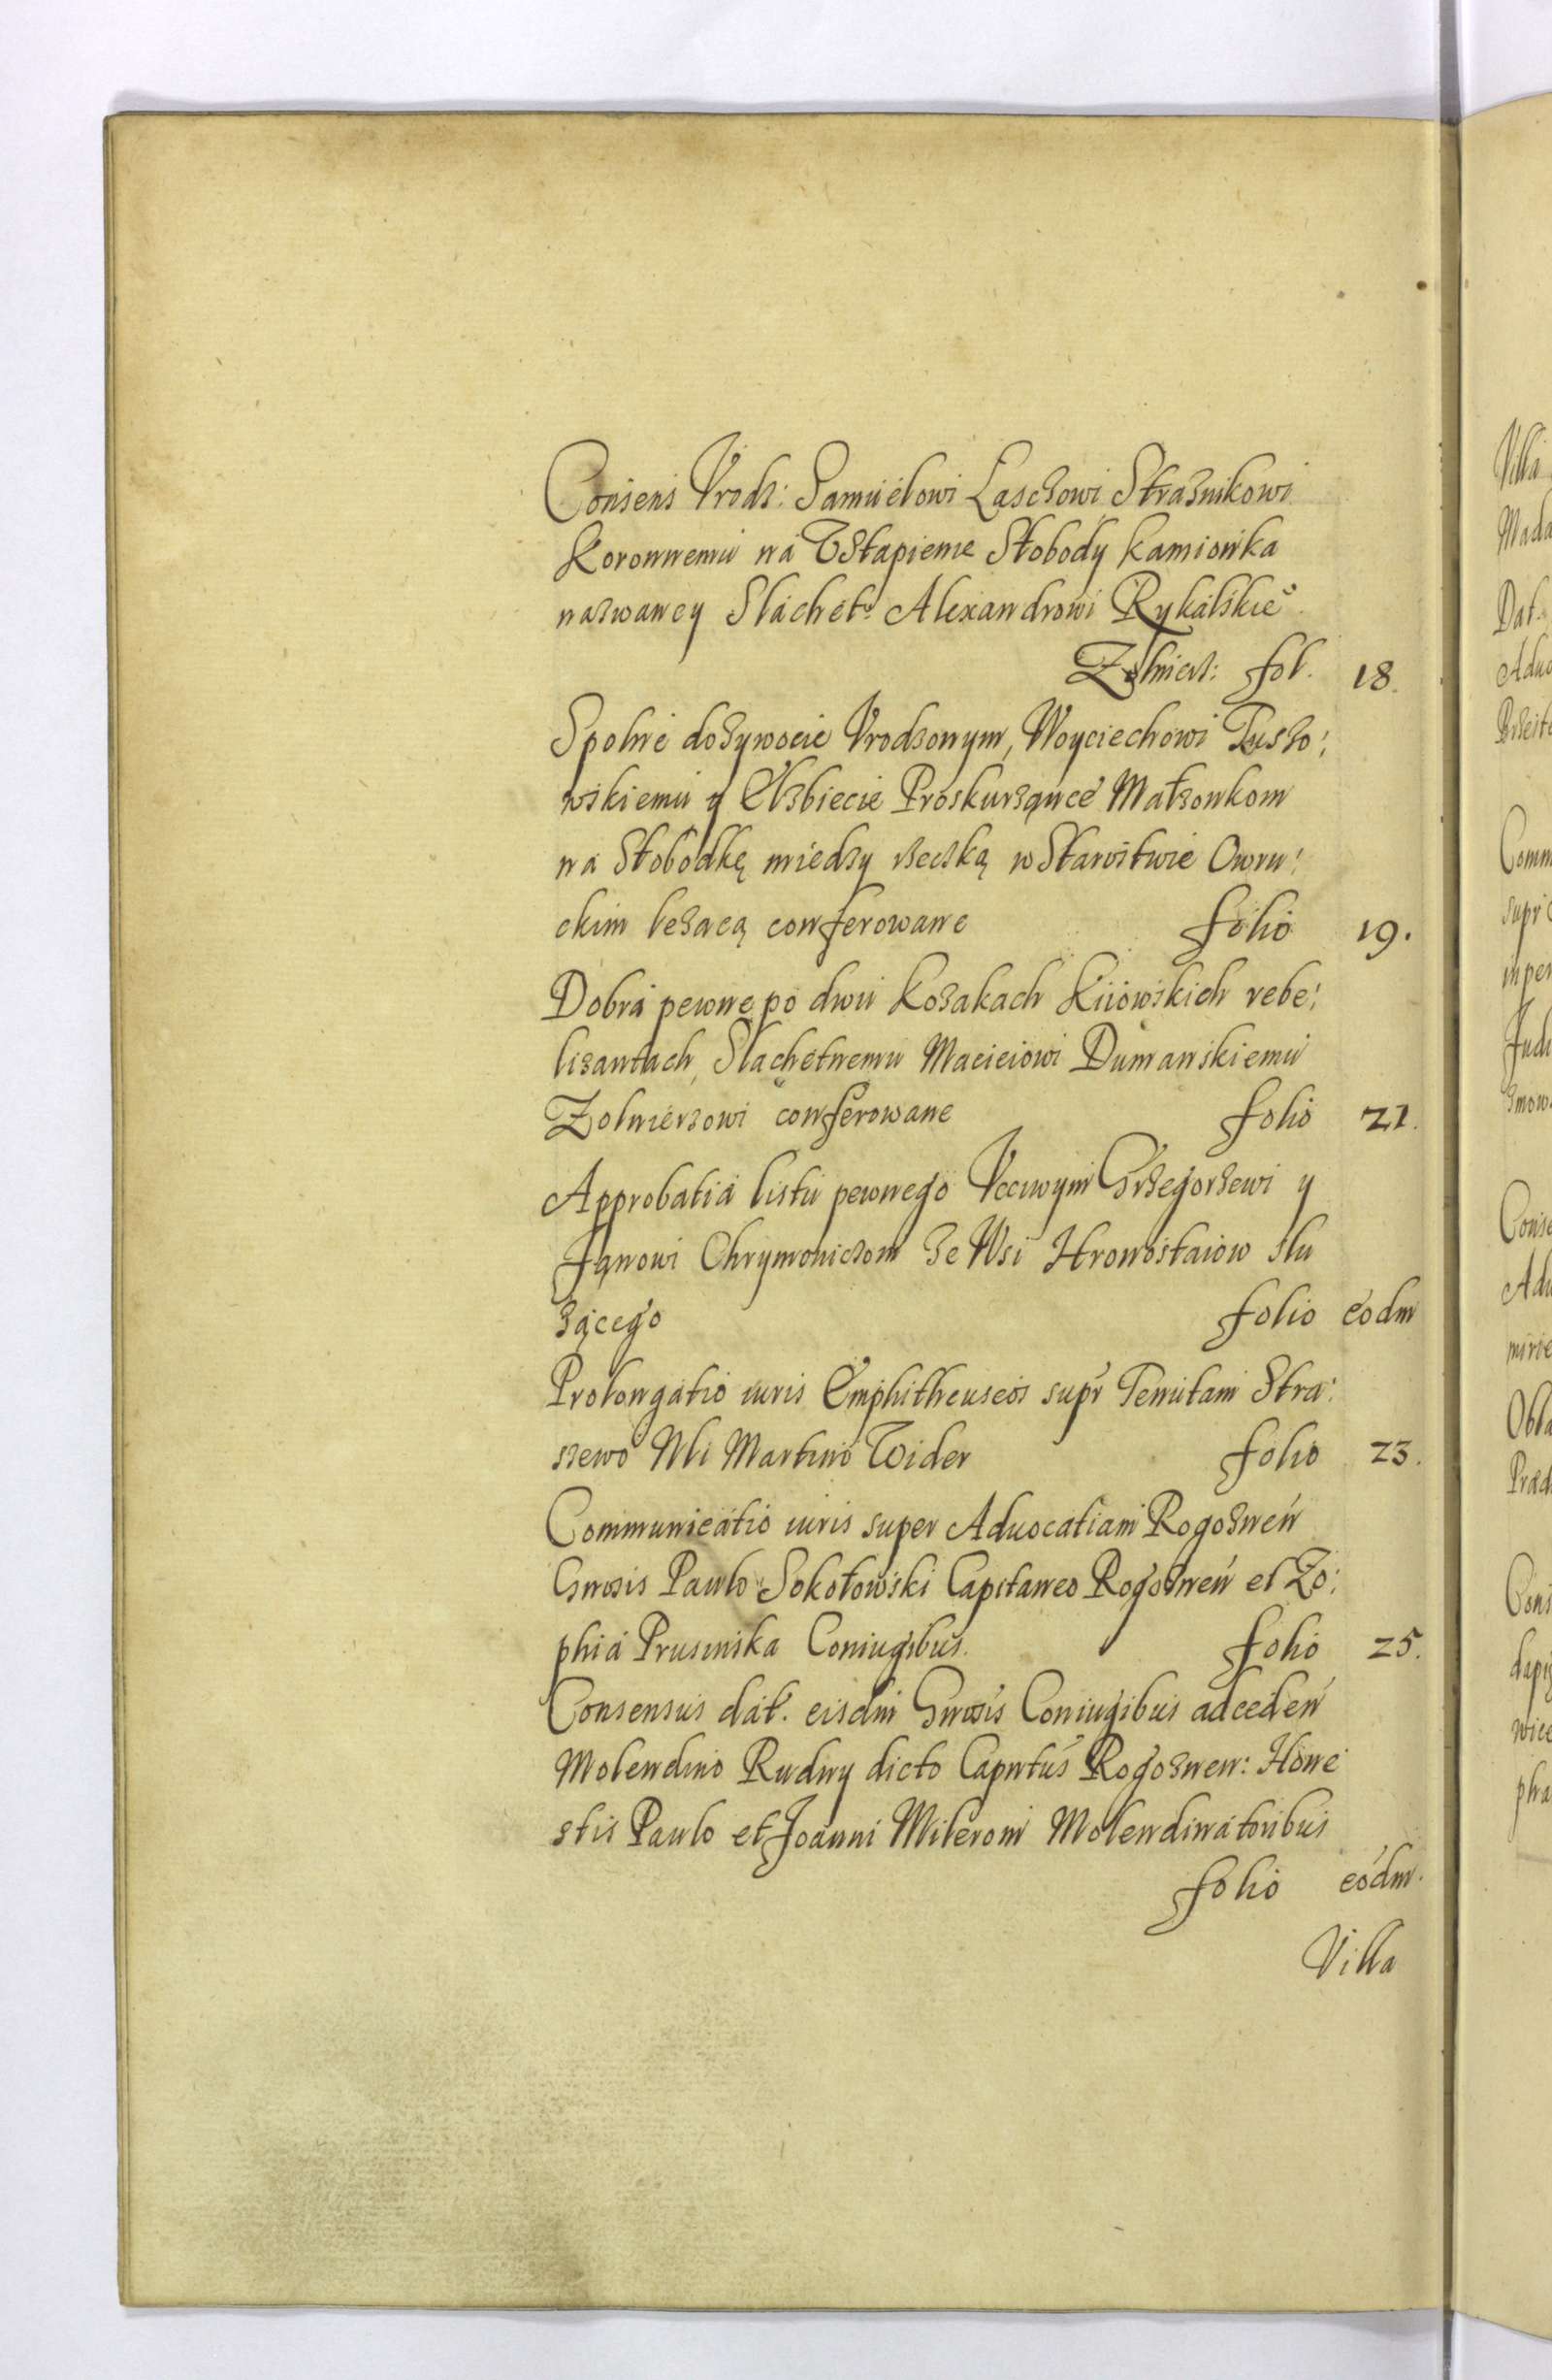 Consens Vrodz: Samuelowi Laschowi Straznikowi
Koronnemu na Vstapienie Słobody Kamionka
nazwaney Slachet° Alexandrowi Rykalskie°
Zołnierz: fol. 18.
Spolne dozywocie Vrodzonym, Woyciechowi Tuszo:
wskiemu y Elzbiecie Proskurzance Małzonkom
na Słobodkę miedzy rzeczką w Starostwie Owru:
ckim lezacą conferowane folio 19.
Dobra pewne po dwu Kozakach Kiiowskich rebe:
lizantach, Slachetnemu Macieiowi Dumanskiemu
Zolnierzowi conferowane folio 21.
Approbatia listu pewnego Vccivym Grzegorzewi y
Janowi Chrymoniczom ze Wsi Hronostaiow slu
zącego folio eodm
Prolongatio iuris Emphitheuseos supr Tenutam Stra:
szewo Nli Martino Wider folio 23.
Communicatio iuris super Aduocatiam Rogoznen
Gnosis Paulo Sokołowski Capitaneo Rogoznen et Zo:
phia Prusinska Coniugibus. folio 25.
Consensus dat. eisdm Gnosis Coniugibus ad ceden
Molendino Rudny dicto Capntus Rogoznen: Hone
stis Paulo et Joanni Milerom Molendinatoribus
folio eodm.
Villa